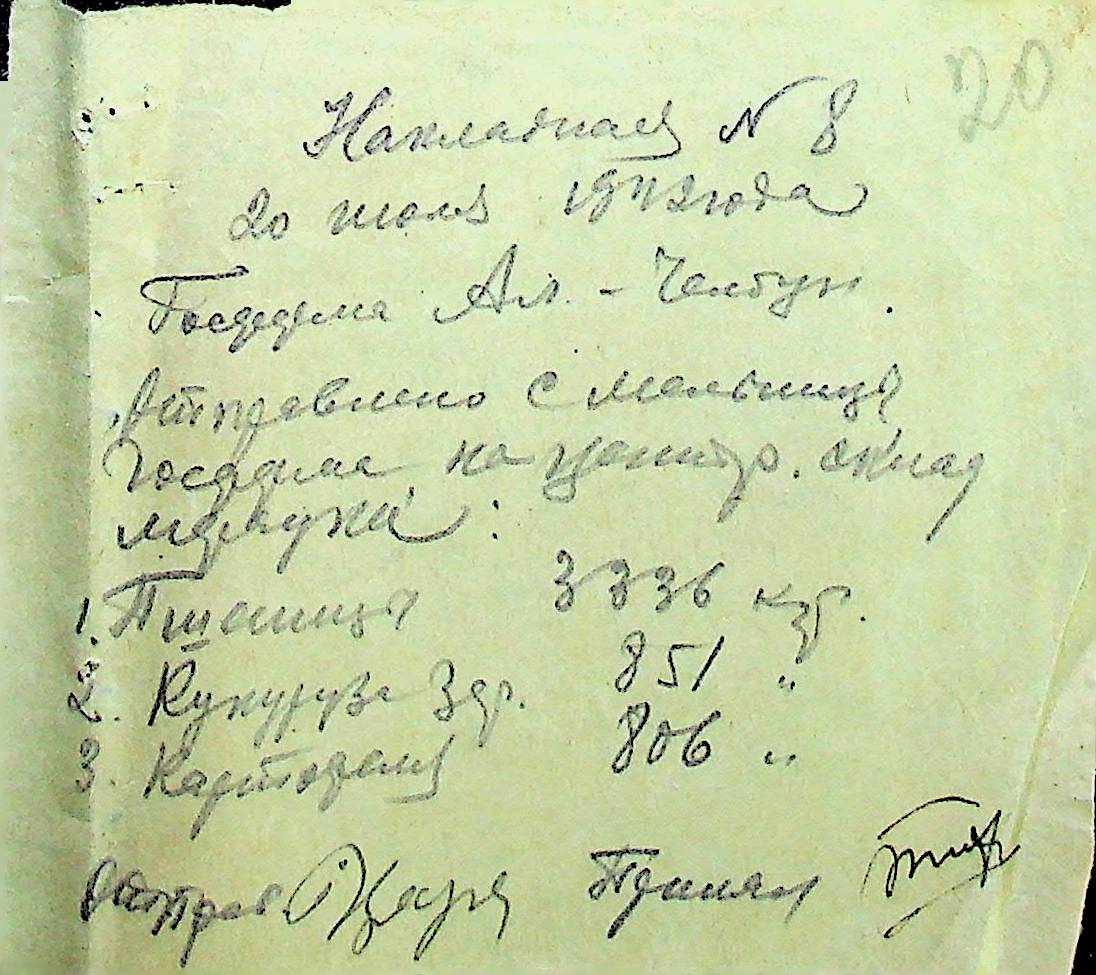 20
Накладная N 8
20 июля 1942 года
Госдома Ал. - Чентун.
Отправлено с мельницы
Госдома на центр. склад
муки:
1. Пшеницы 3336 кгр.
2. Кукуруза Зер. 851 "
3. Картофеля 806 "
Отправ Принял